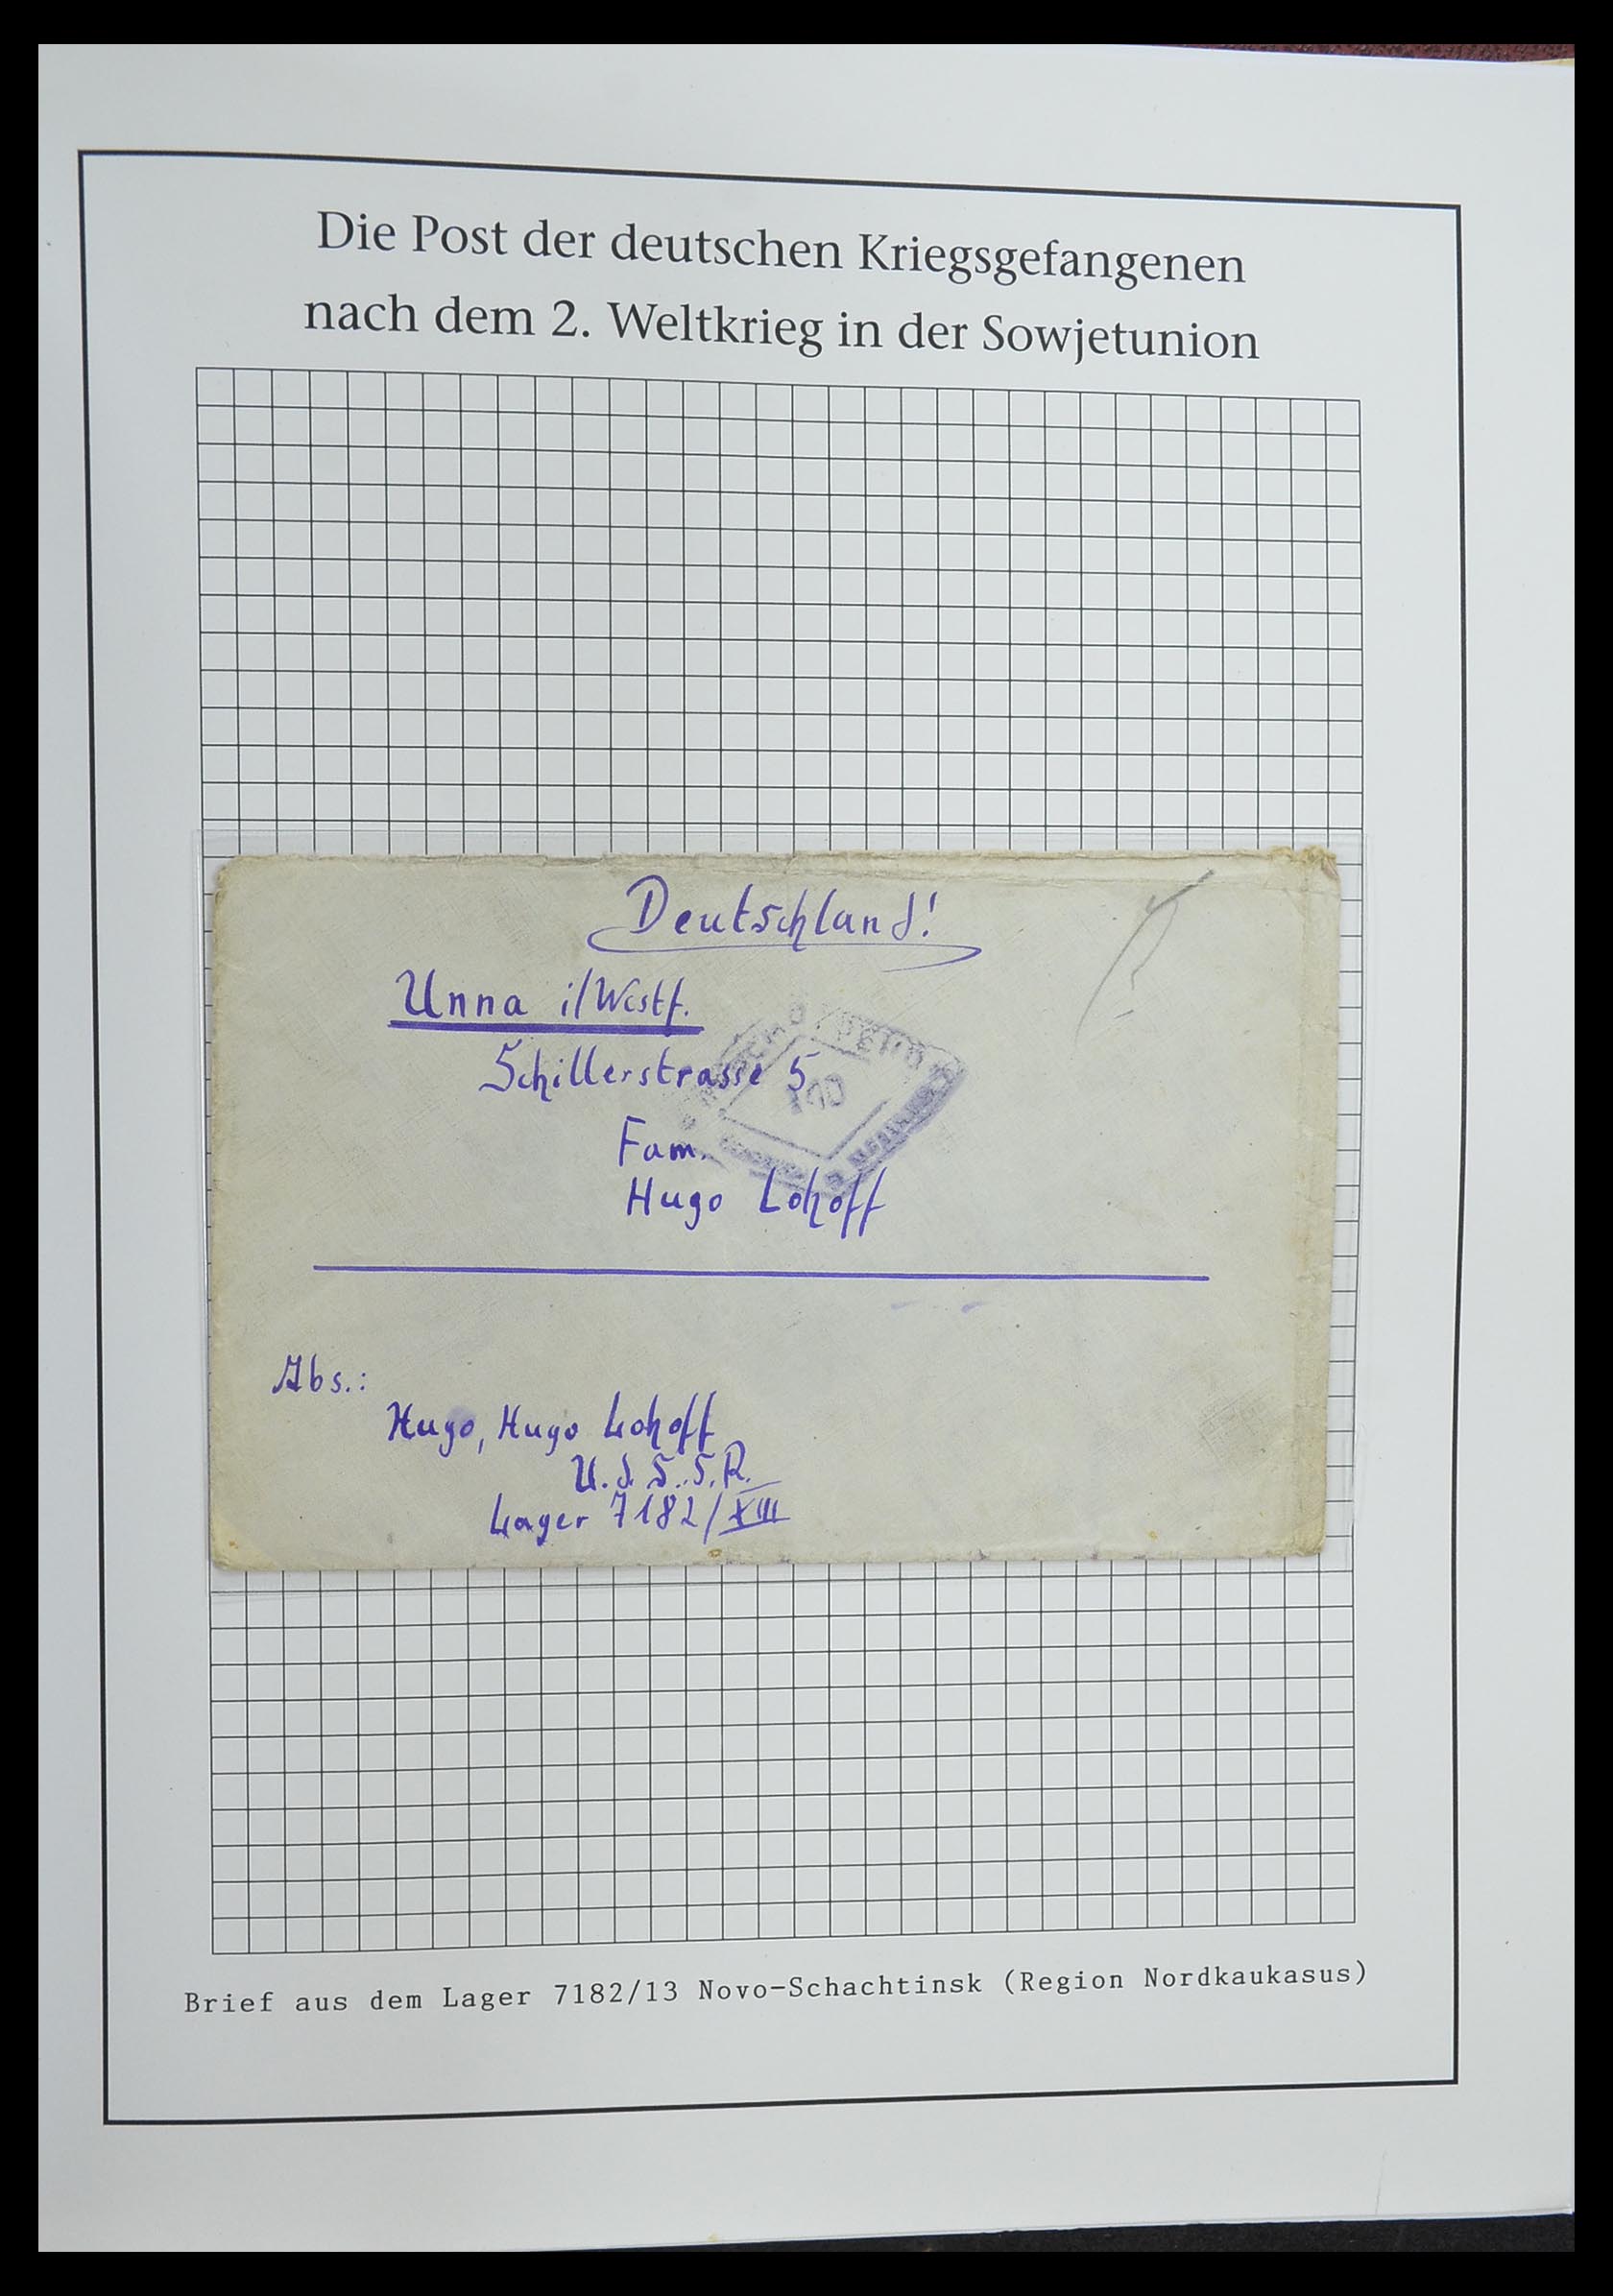 Die Post der deutschen Kriegsgefangenen
nach dem 2. Weltkrieg in der Sowjetunion
Deutschland!
Unna i/Westf.
Schillerstrasse 5
Fam.
Hugo Lohoff
Abs.:
Hugo, Hugo Lohoff
U.d.S.S.R.
Lager 7182/XIII
Brief aus dem Lager 7182/13 Novo-Schachtinsk (Region Nordkaukasus)